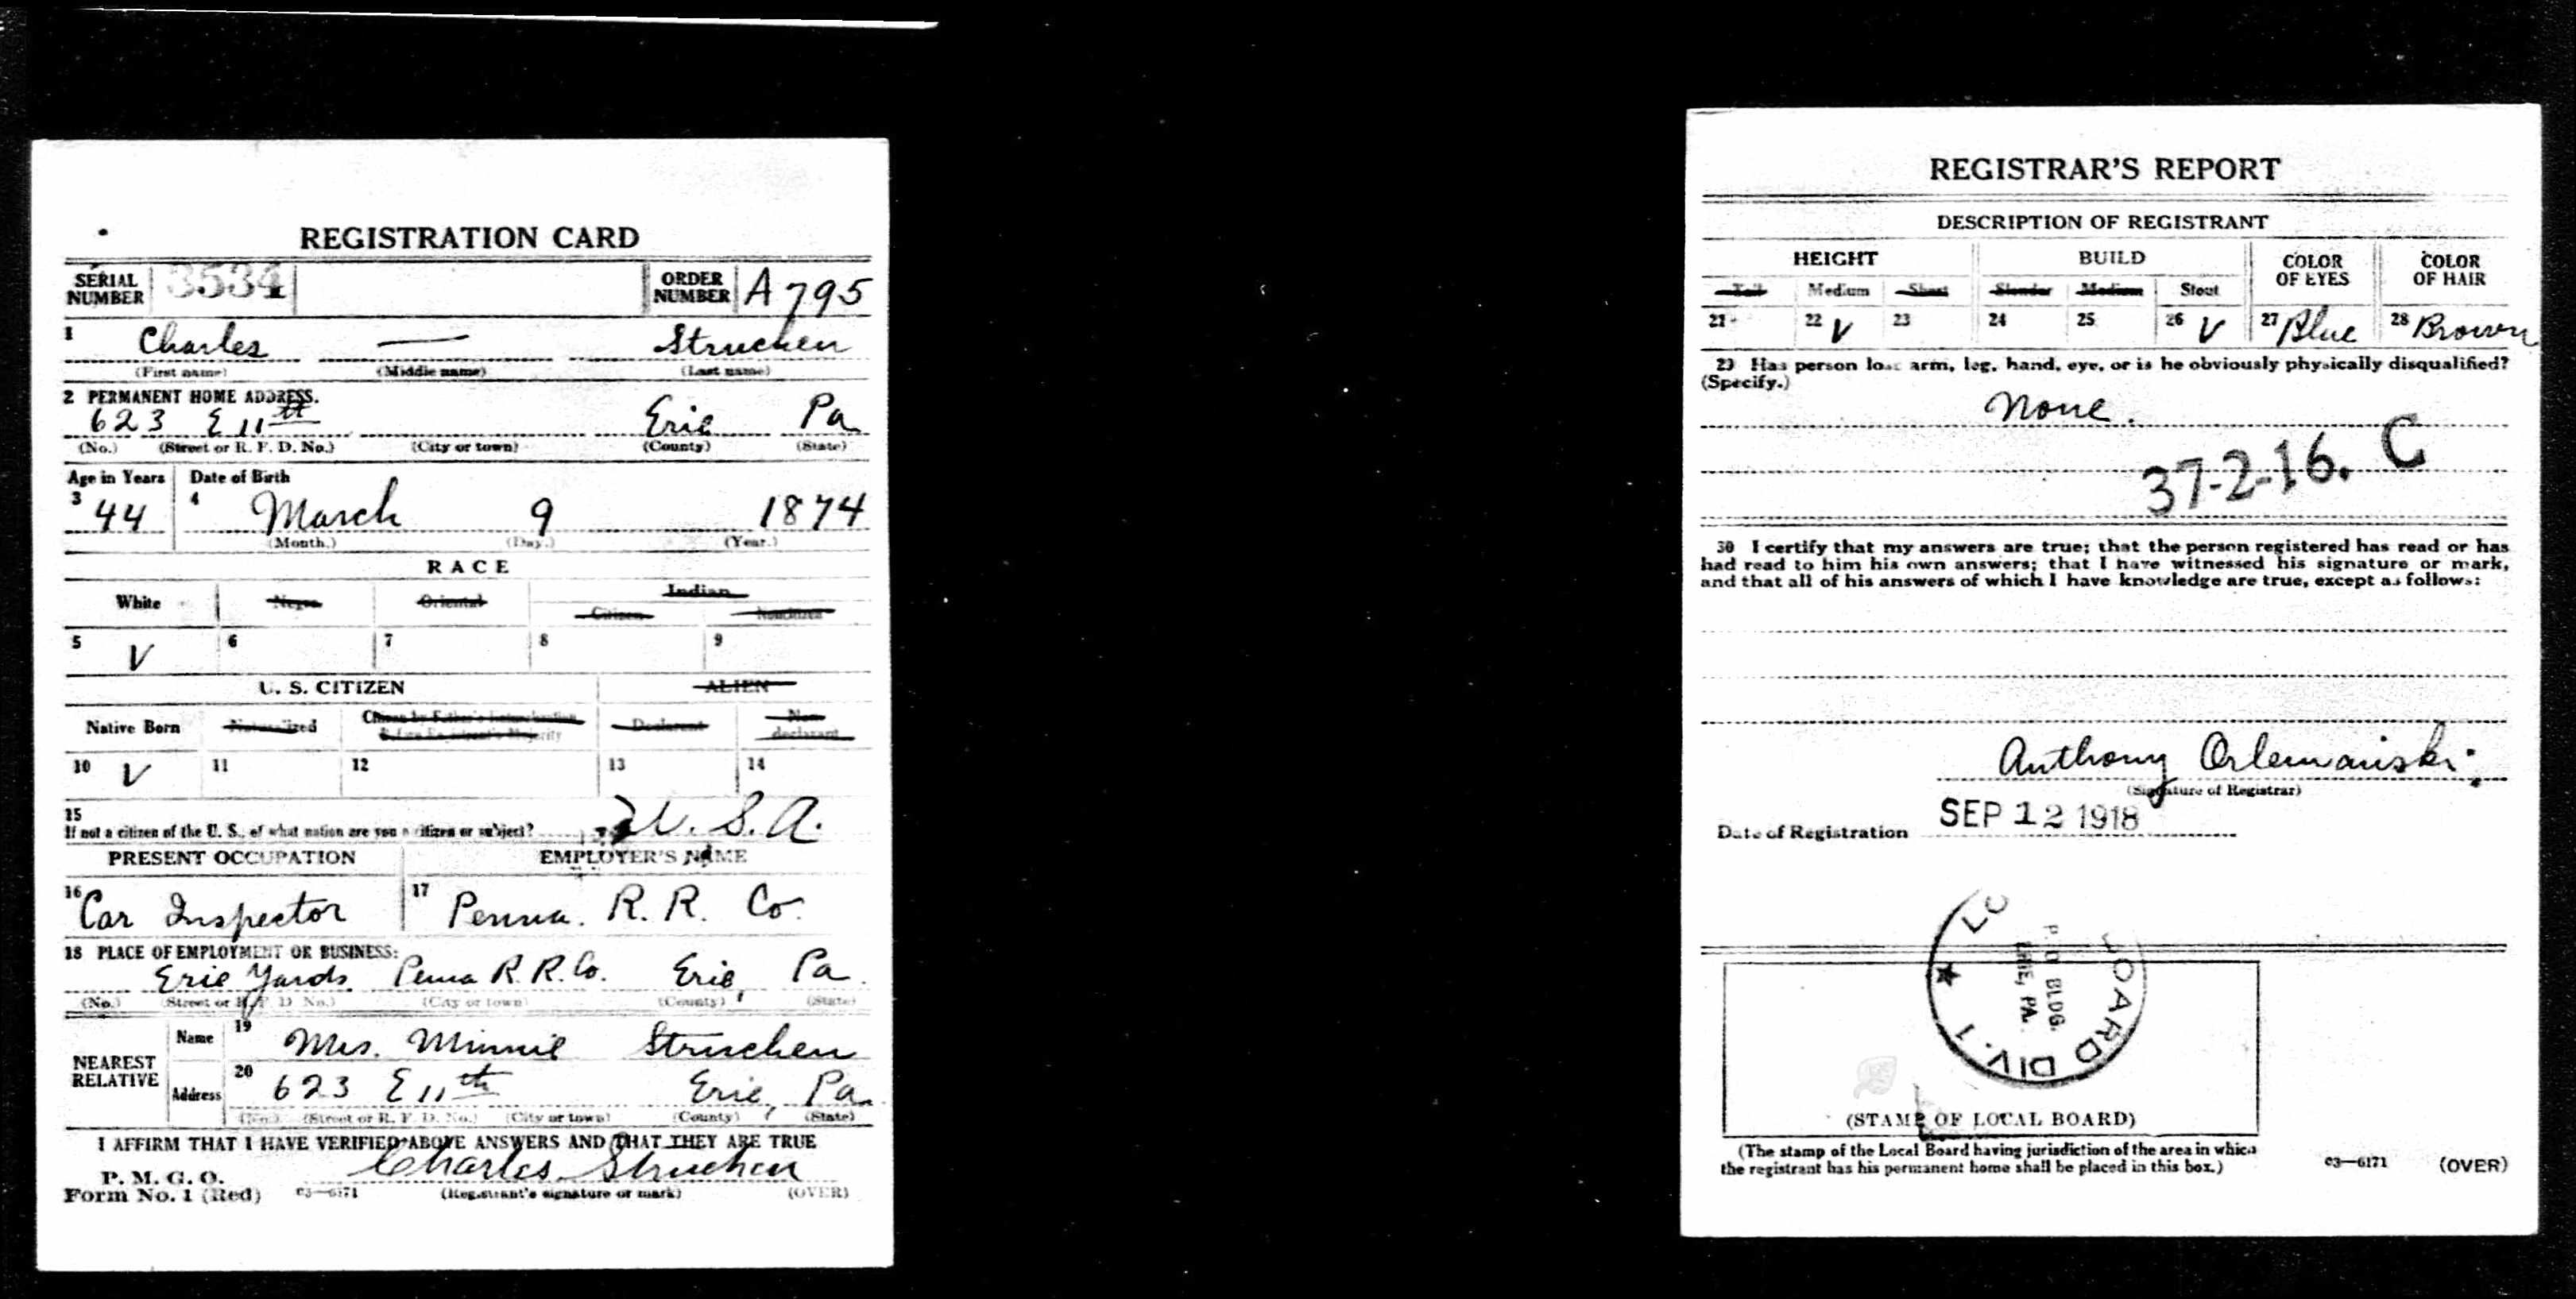 REGISTRATION CARD
SERIAL NUMBER 3534 ORDER NUMBER A795
1 Charles — Struchen
(First name) (Middle name) (Last name)
2 PERMANENT HOME ADDRESS.
623 E 11th Erie Pa
(No.) (Street or R. F. D. No.) (City or town) (County) (State)
Age in Years Date of Birth
3 44 4 March 9 1874
(Month.) (Day.) (Year.)
RACE
White Negro Oriental Indian
Citizen Noncitizen
5 V 6 7 8 9
U. S. CITIZEN ALIEN
Native Born Naturalized Citizen by Father's Naturalization Before Registrant's Majority Declarant Non-declarant
10 V 11 12 13 14
15
If not a citizen of the U. S., of what nation are you a citizen or subject? U. S. A.
PRESENT OCCUPATION EMPLOYER'S NAME
16 Car Inspector 17 Penna. R. R. Co.
18 PLACE OF EMPLOYMENT OR BUSINESS:
Erie Yards Penna R. R. Co. Erie, Pa.
(No.) (Street or R. F. D. No.) (City or town) (County) (State)
NEAREST RELATIVE
Name 19 Mrs. Minnie Struchen
Address 20 623 E 11th Erie, Pa.
(No.) (Street or R. F. D. No.) (City or town) (County) (State)
I AFFIRM THAT I HAVE VERIFIED ABOVE ANSWERS AND THAT THEY ARE TRUE
P. M. G. O. Charles Struchen
Form No. 1 (Red) 03—6171 (Registrant's signature or mark) (OVER)
REGISTRAR'S REPORT
DESCRIPTION OF REGISTRANT
HEIGHT BUILD COLOR OF EYES COLOR OF HAIR
Tall Medium Short Slender Medium Stout
21 22 V 23 24 25 26 V 27 Blue 28 Brown
29 Has person lost arm, leg, hand, eye, or is he obviously physically disqualified?
(Specify.)
None.
37-2-16. C
30 I certify that my answers are true; that the person registered has read or has
had read to him his own answers; that I have witnessed his signature or mark,
and that all of his answers of which I have knowledge are true, except as follows:
Anthony Orlemanski
(Signature of Registrar)
Date of Registration SEP 12 1918
BOARD DIV. 1
P.O. BLDG.
ERIE, PA.
(STAMP OF LOCAL BOARD)
(The stamp of the Local Board having jurisdiction of the area in which
the registrant has his permanent home shall be placed in this box.)
03—6171 (OVER)